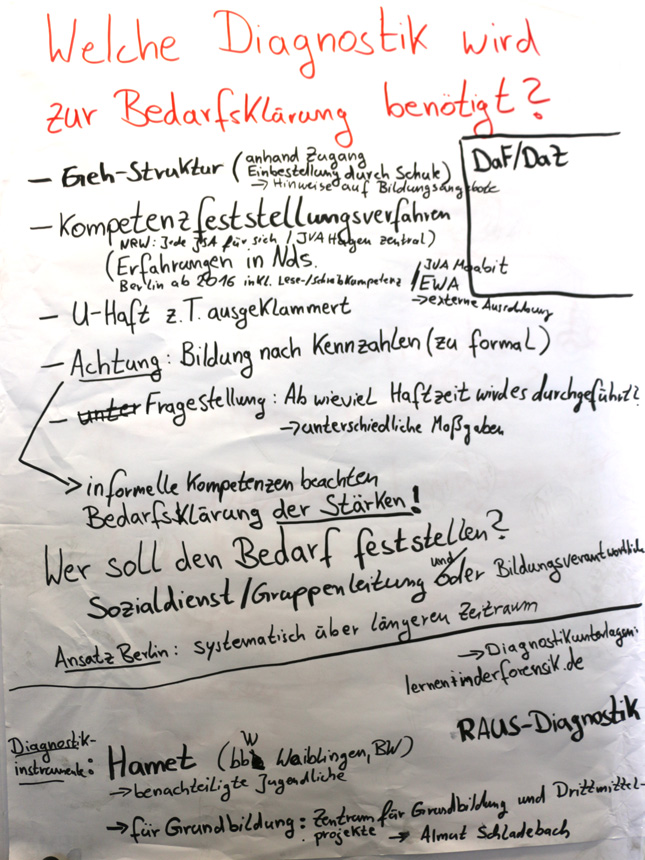 Welche Diagnostik wird
zur Bedarfsklärung benötigt?
– Geh-Struktur (anhand Zugang
Einbestellung durch Schule)
→ Hinweise auf Bildungsangebote
DaF/DaZ
– Kompetenzfeststellungsverfahren
NRW: Jede JSA für sich / JVA Hagen zentral)
(Erfahrungen in Nds.
Berlin ab 2016 inkl. Lese-/Schreibkompetenz
/ JVA Moabit
EWA
→ externe Ausschreibung
– U-Haft z.T. ausgeklammert
– Achtung: Bildung nach Kennzahlen (zu formal)
– unter Fragestellung: Ab wieviel Haftzeit wird es durchgeführt?
→ unterschiedliche Maßgaben
→ informelle Kompetenzen beachten
Bedarfsklärung der Stärken!
Wer soll den Bedarf feststellen?
Sozialdienst/Gruppenleitung und/oder Bildungsverantwortliche
Ansatz Berlin: systematisch über längeren Zeitraum
→ Diagnostikunterlagen:
lernen+inderforensik.de
RAUS-Diagnostik
Diagnostik-
instrumente: Hamet (bbw Waiblingen, BW)
→ benachteiligte Jugendliche
→ für Grundbildung: Zentrum für Grundbildung und Drittmittel-
projekte → Almut Schladebach